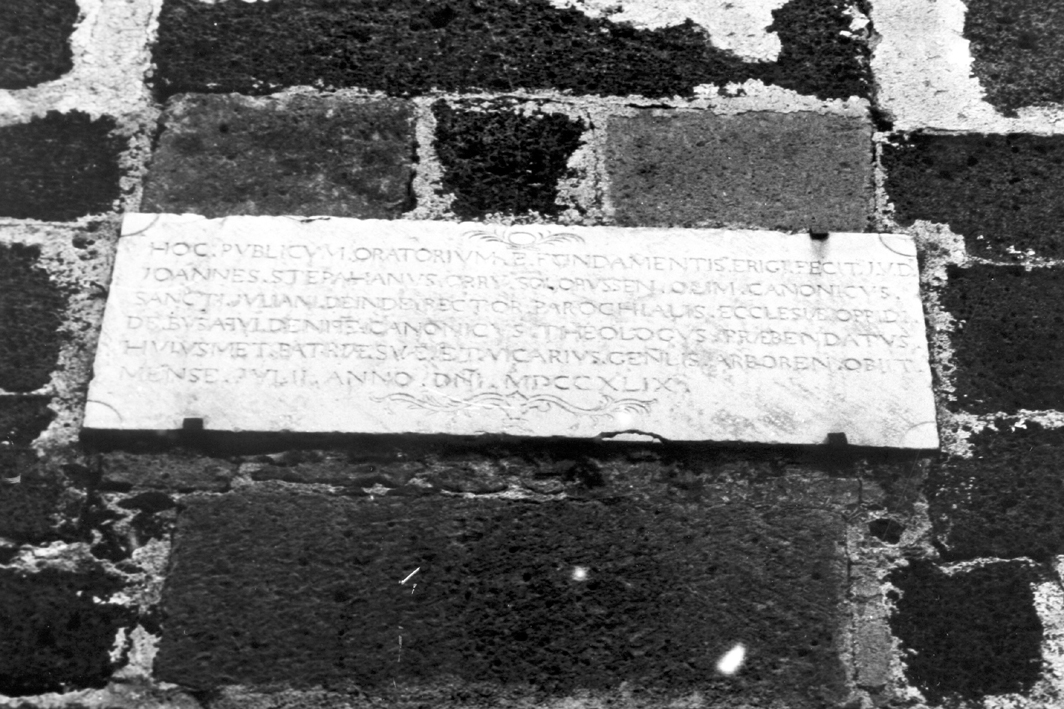 HOC. PVBLICVM. ORATORIVM. E. FVNDAMENTIS. ERIGI. FECIT. J.V.D.
IOANNES. STEPAHANVS. ORRV. SOLORVSSEN. OLIM. CANONICVS.
SANCTI. IVLIANI. DEINDE. RECTOR. PAROCHIALIS. ECCLESIÆ. OPP. DI
DE. CANONICVS. THEOLOGVS. PRÆBENDATVS.
HVIVSMET. PATRIÆ. SVÆ. ET. VICARIVS. GENLIS. ARBOREN. OBIIT.
MENSE. IVLII. ANNO. DNI. MDCCXLIX.